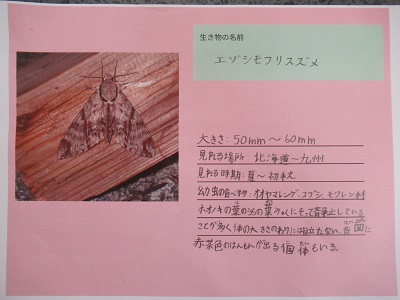 生き物の名前
エゾシモフリスズメ
大きさ:50mm〜60mm
見れる場所:北海道〜九州
見れる時期:夏〜初秋
幼虫の食べます:オオヤマレンゲ、コブシ、モクレン科
ホオノキの葉のうらの葉みゃくにそって静止している
ことが多く、体の大きさのわりには目立たない。背面に
赤茶色のはんもんが出る個体もいる。